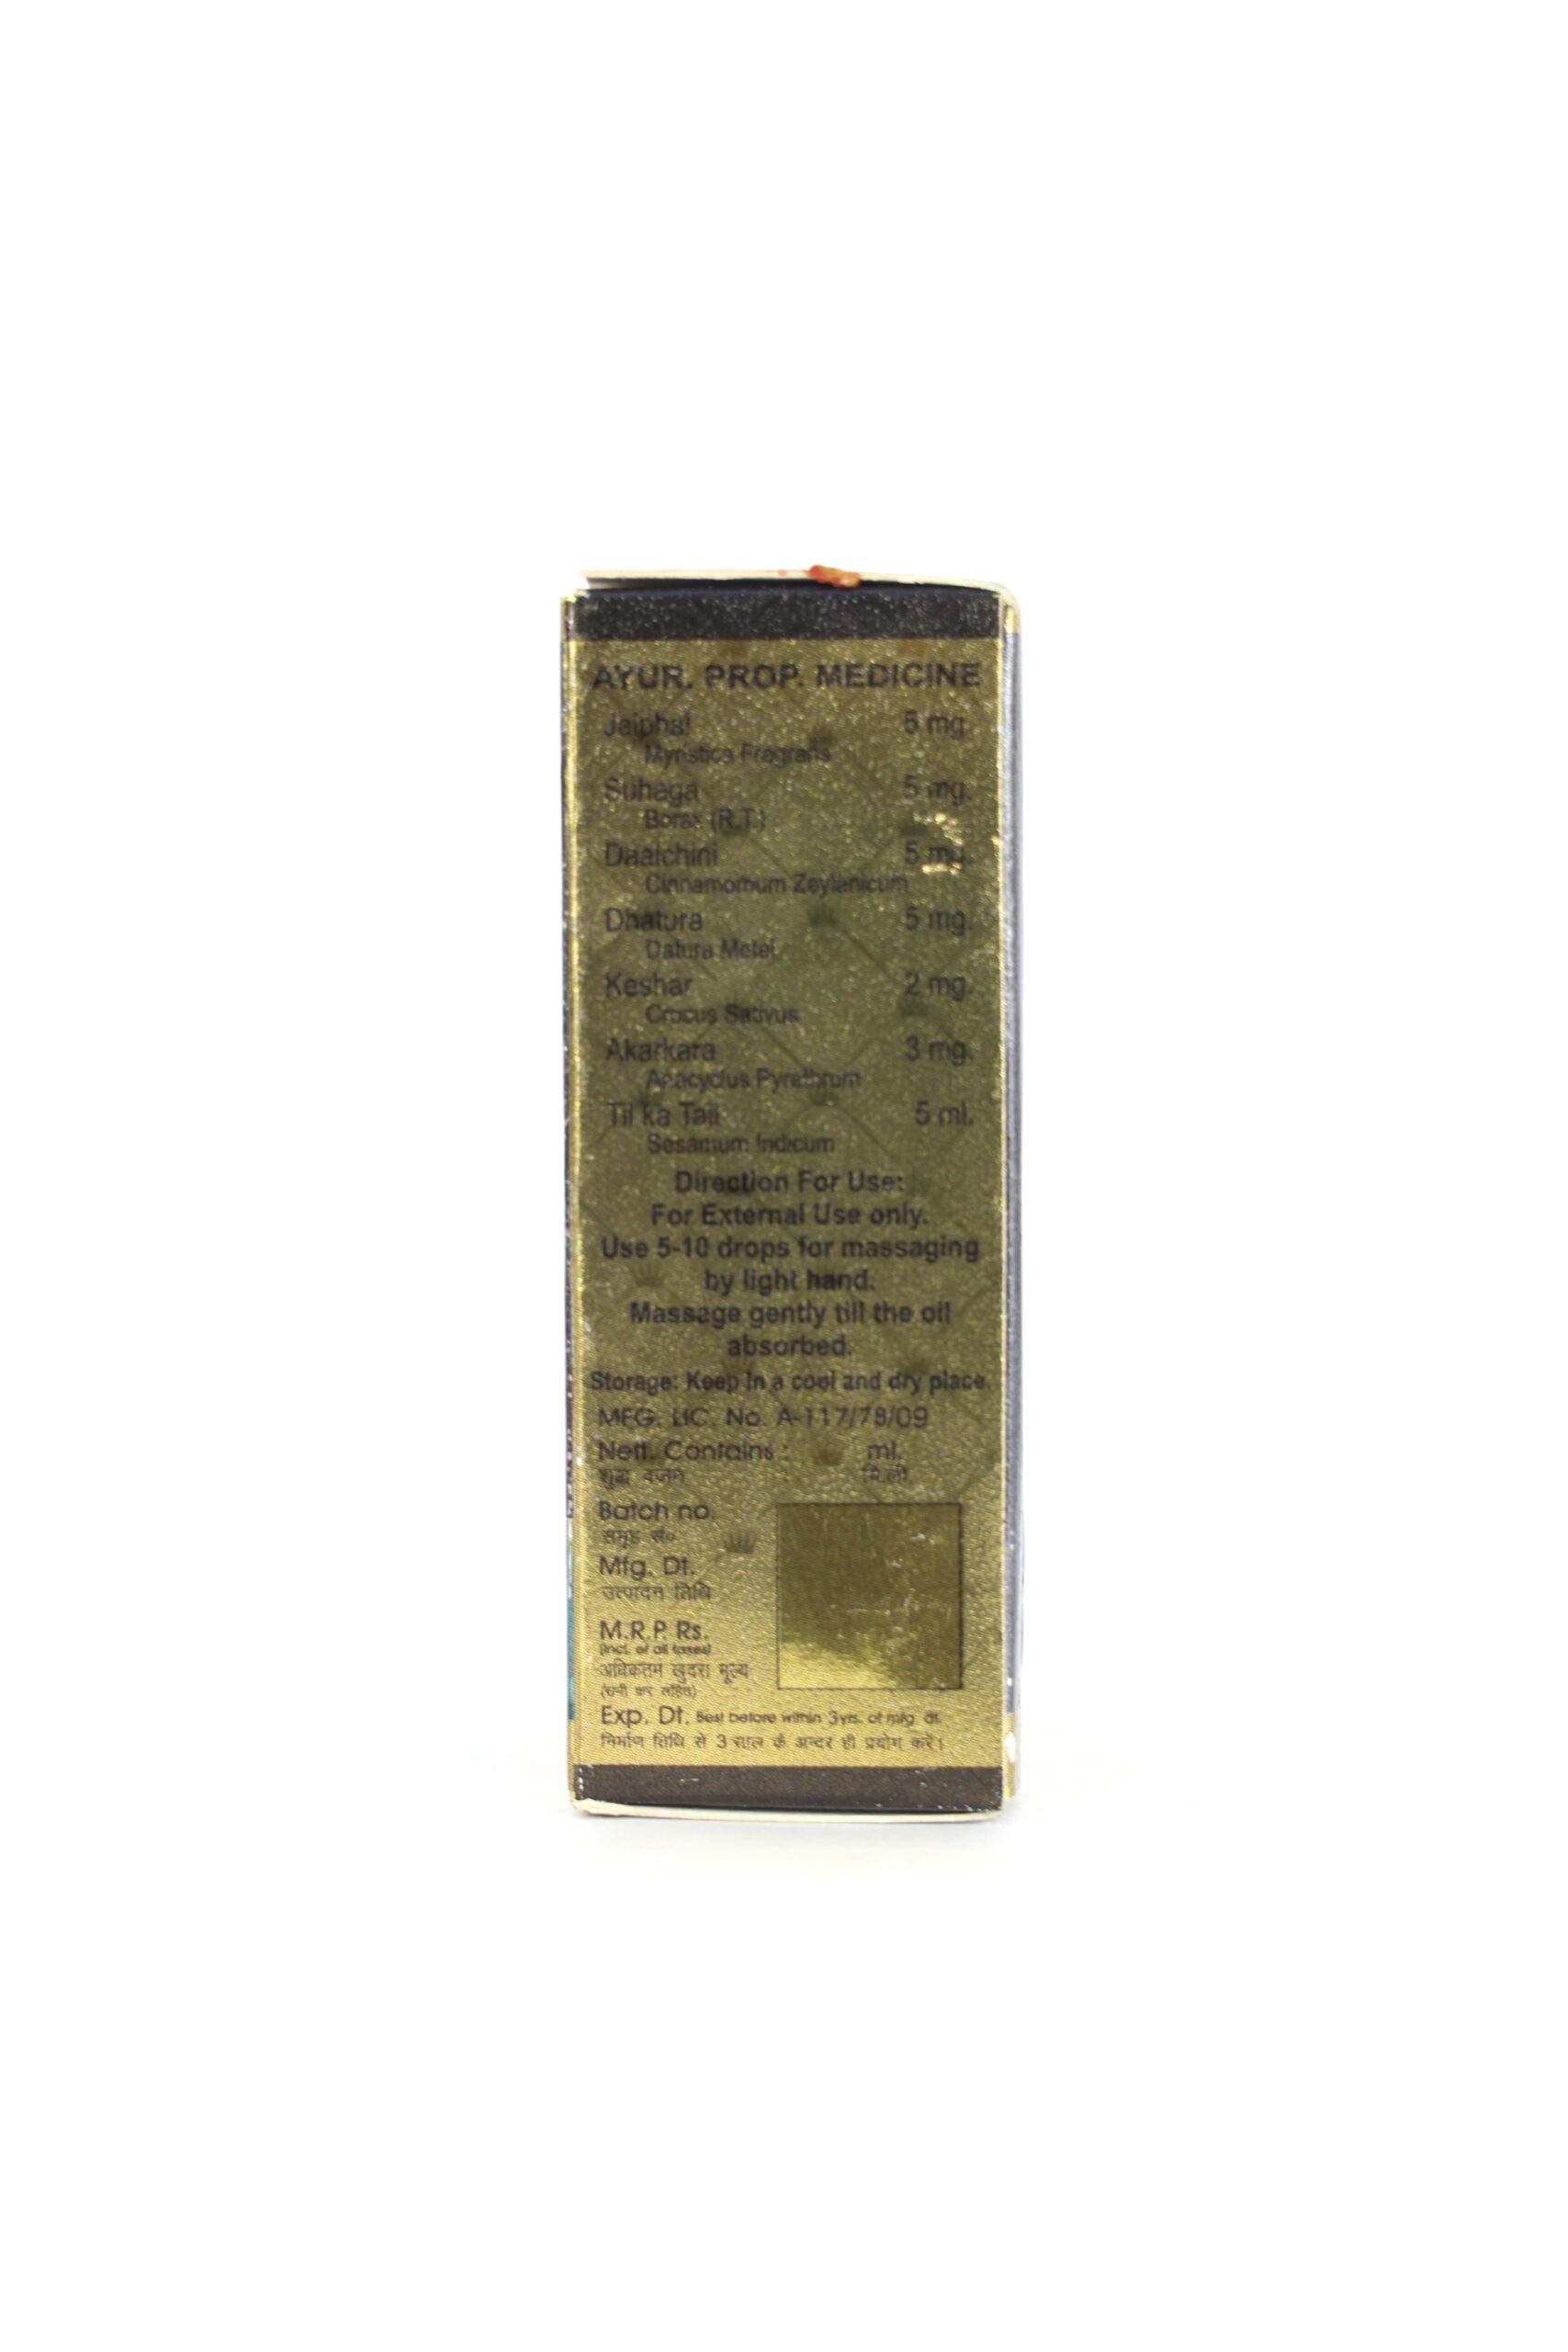 AYUR. PROP. MEDICINE
Jaiphal 5 mg.
Myristica Fragrans
Suhaga 5 mg.
Borax (R.T.)
Daalchini 5 mg.
Cinnamomum Zeylanicum
Dhatura 5 mg.
Datura Metel
Keshar 2 mg.
Crocus Sativus
Akarkara 3 mg.
Anacyclus Pyrethrum
Til ka Tail 5 ml.
Sesamum Indicum
Direction For Use:
For External Use only.
Use 5-10 drops for massaging
by light hand.
Massage gently till the oil
absorbed.
Storage: Keep in a cool and dry place.
MFG. LIC. No. A-117/78/09
Nett. Contains : ml.
शुद्ध वजन मि.ली.
Batch no.
समूह सं०
Mfg. Dt.
उत्पादन तिथि
M.R.P. Rs.
(Incl. of all taxes)
अधिकतम खुदरा मूल्य
(सभी कर सहित)
Exp. Dt. Best before within 3yrs. of mfg. dt.
निर्माण तिथि से 3 साल के अन्दर ही प्रयोग करें।